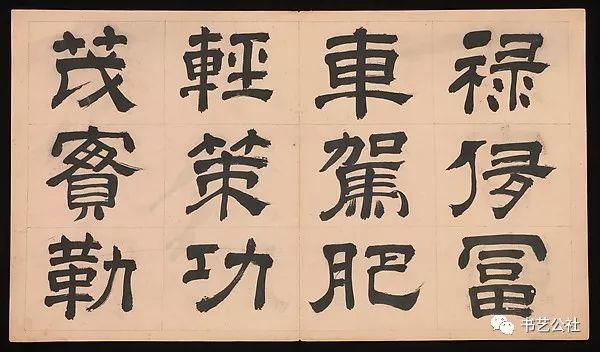 禄侈冨
車駕肥
輕策功
茂實勒
书艺公社